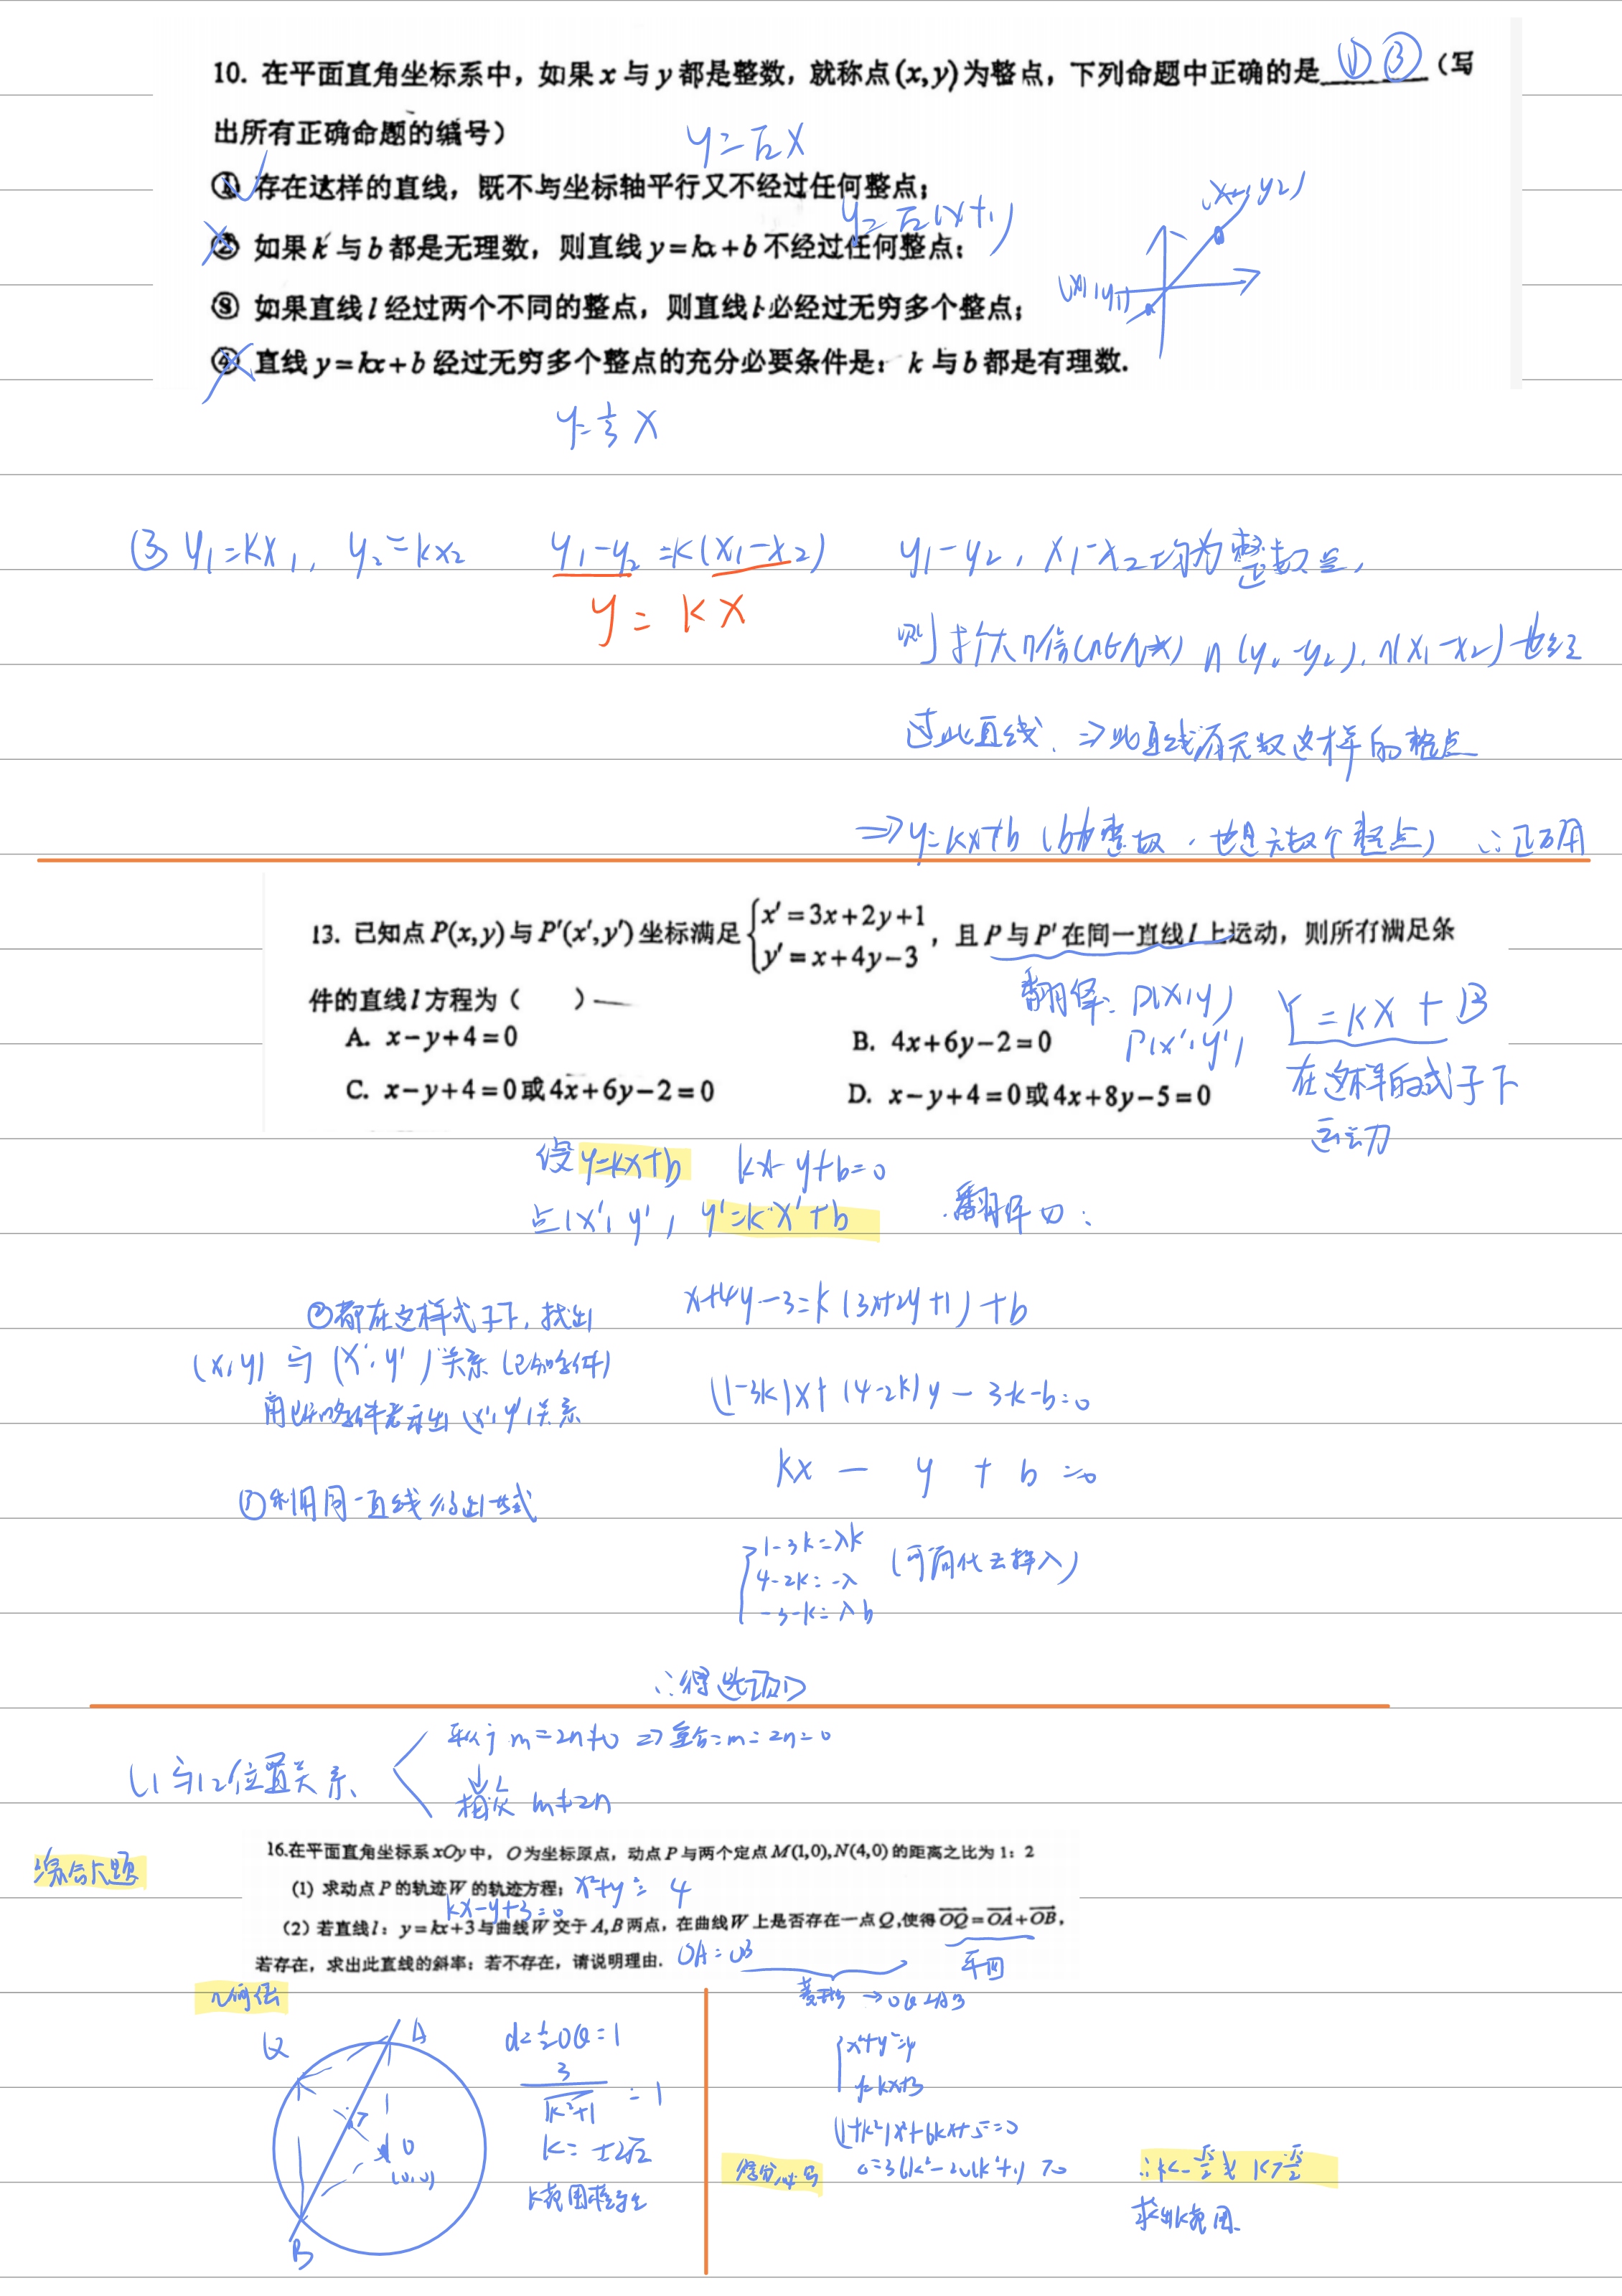 10. 在平面直角坐标系中，如果 x 与 y 都是整数，就称点 (x,y) 为整点，下列命题中正确的是 ①③ （写
出所有正确命题的编号）
y=√2x
① 存在这样的直线，既不与坐标轴平行又不经过任何整点；
y=√2(x+1)
(x2,y2)
② 如果 k 与 b 都是无理数，则直线 y=kx+b 不经过任何整点；
(x1,y1)
③ 如果直线 l 经过两个不同的整点，则直线 l 必经过无穷多个整点；
④ 直线 y=kx+b 经过无穷多个整点的充分必要条件是： k 与 b 都是有理数.
y=1/3 x
③ y1=kx1, y2=kx2 y1-y2=k(x1-x2) y1-y2, x1-x2均为整数点,
y=kx
则扩大n倍(n∈N*) n(y1-y2), n(x1-x2)也经
过此直线. ⇒此直线有无数这样的整点
⇒y=kx+b (b为整数, 也是无数个整点) ∴正确
13. 已知点 P(x,y) 与 P′(x′,y′) 坐标满足 {x′=3x+2y+1 y′=x+4y-3 ，且 P 与 P′ 在同一直线 l 上运动，则所有满足条
件的直线 l 方程为（ ）
翻译: P(x,y) Y=kX+B
P(x′,y′)
A. x-y+4=0 B. 4x+6y-2=0
在这样的式子下
C. x-y+4=0 或 4x+6y-2=0 D. x-y+4=0 或 4x+8y-5=0
运动
设y=kx+b kx-y+b=0
点(x′,y′) y′=kx′+b 翻译四:
x+4y-3=k(3x+2y+1)+b
②都在这样式子下, 找出
(x,y)与(x′,y′)关系(已知条件)
(1-3k)x+(4-2k)y-3-k-b=0
用此的条件表示出(x′,y′)关系
kx - y + b =0
③利用同一直线得出一式
{1-3k=λk
4-2k=-λ
-3-k=λb
∴得选项D
平行 m=2n≠0 ⇒ 重合:m=2n=0
l1与l2位置关系
相交 m≠2n
综合大题
16.在平面直角坐标系 xOy 中， O 为坐标原点，动点 P 与两个定点 M(1,0),N(4,0) 的距离之比为 1：2
(1) 求动点 P 的轨迹 W 的轨迹方程； x²+y²=4
kx-y+3=0
（2）若直线 l： y=kx+3 与曲线 W 交于 A,B 两点，在曲线 W 上是否存在一点 Q ,使得 OQ=OA+OB，
若存在，求出此直线的斜率；若不存在，请说明理由. OA=OB
平四
几何法
菱形 →OQ⊥AB
Q A
d=1/2OQ=1
3/√(k²+1)=1
k=±2√2
O
(0,0)
B
{x²+y²=4
y=kx+3
(1+k²)x²+6kx+5=0
得分
∴k<-√5/2或k>√5/2
求出k范围.